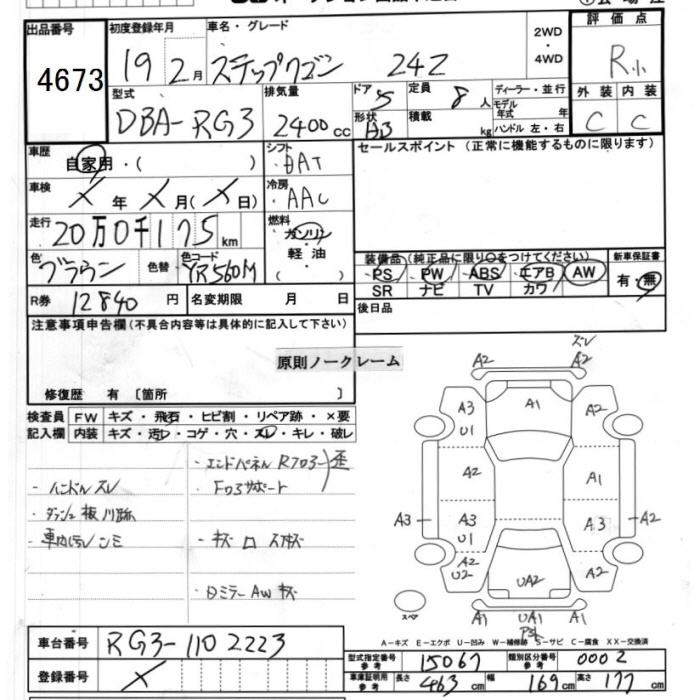 出品番号 初度登録年月 車名・グレード 2WD ・ 4WD 評価点
4673 19 2月 ステップワゴン 24Z R小
型式 排気量 ドア 5 定員 8人 ディーラー・並行 外装 内装
DBA-RG3 2400cc 形状 HB 積載 kg モデル年式 年 ハンドル 左・右 C C
車歴 自家用・( ) シフト AT セールスポイント (正常に機能するものに限ります)
車検 X年 X月(X日) 冷房 AAC
走行 20万0千175km 燃料 ガソリン 軽油 ( )
色 ブラウン 色替 色コード YR560M 装備品(純正品に限り○をつけてください) 新車保証書
PS PW ABS エアB AW 有・無
SR ナビ TV カワ
R券 12840円 名変期限 月 日 後日品
注意事項申告欄(不具合内容等は具体的に記入して下さい)
原則ノークレーム
修復歴 有 〔箇所 〕
検査員記入欄 FW キズ・飛石・ヒビ割・リペア跡・×要
内装 キズ・汚レ・コゲ・穴・スレ・キレ・破レ
・エンドパネル Rフロアー 歪
・ハンドルスレ ・Fコアサポート
・ダッシュ板
・キズ ロ スリキズ
・Dミラー AW キズ
スレ
A2 A2
A3 U1 A1 A2
A2 A1
A3 A3 U1 A3 A2
A2 U2 UA2 A2
スペア A1 UA1 A1
A-キズ E-エクボ U-凹み W-補修跡 S-サビ C-腐食 XX-交換済
車台番号 RG3-1102223
登録番号 X
型式指定番号 参考 15067 類別区分番号 参考 0002
車庫証明用 参考 長さ 463cm 幅 169cm 高さ 177cm